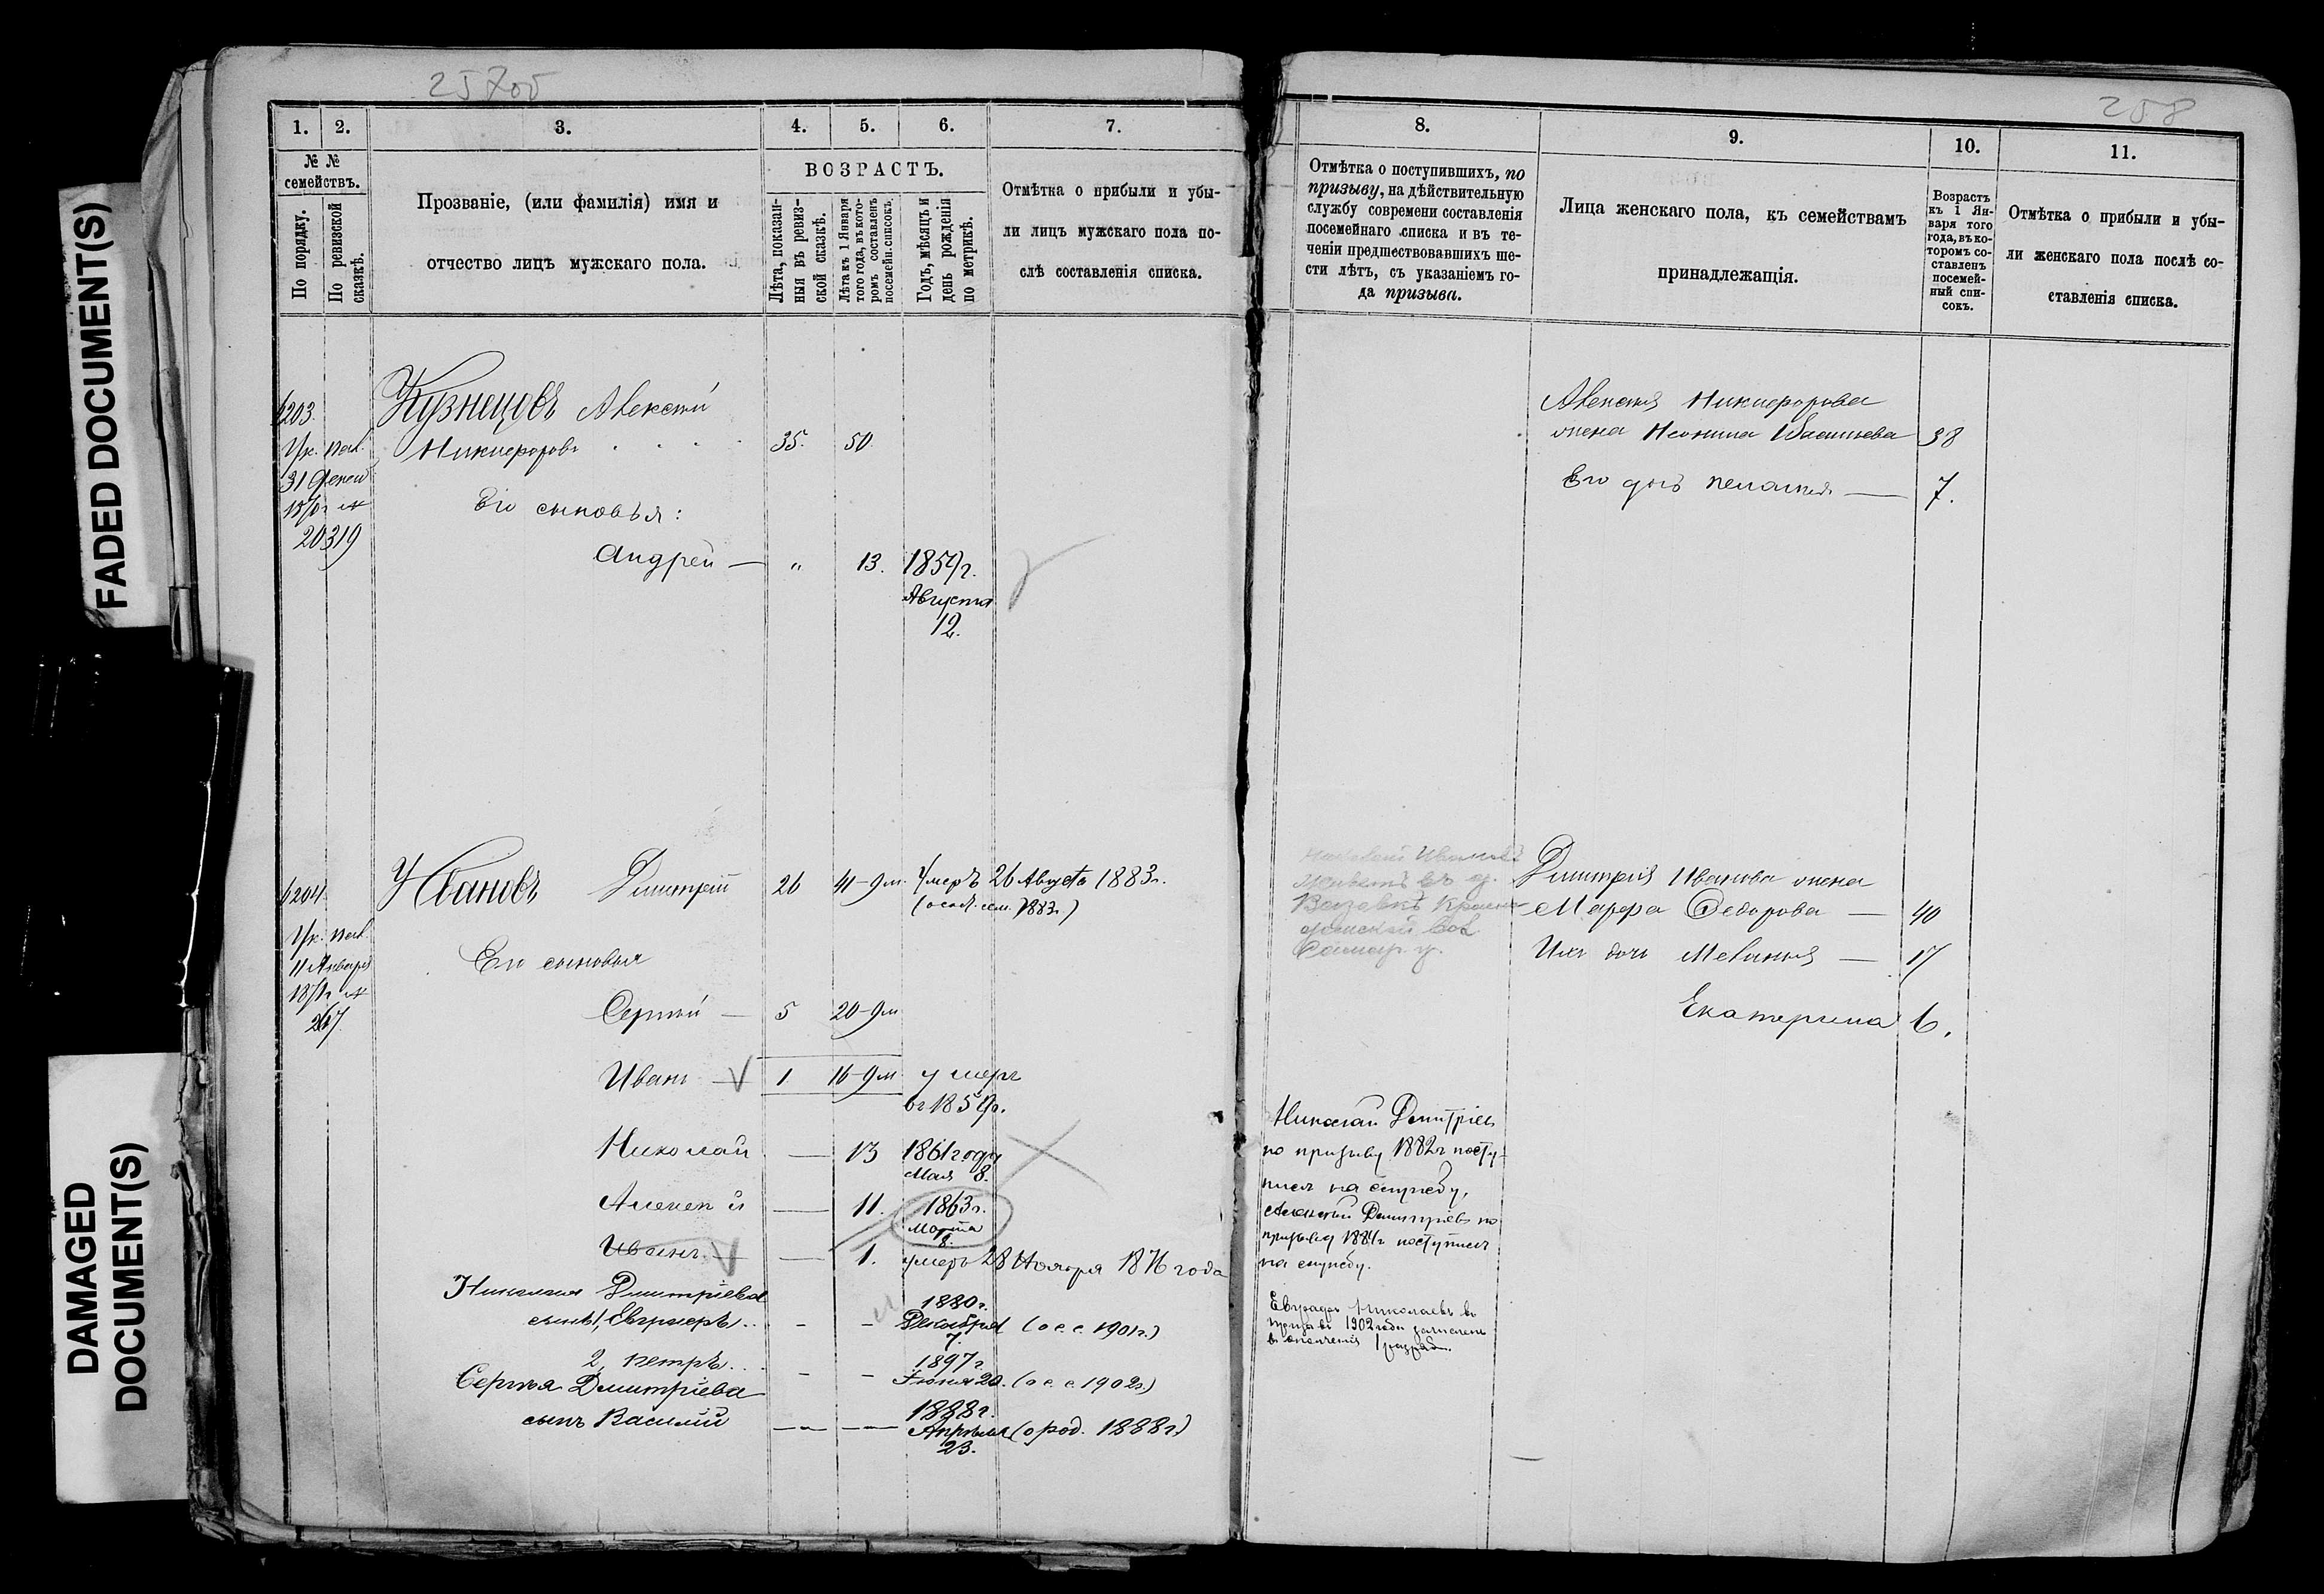 FADED DOCUMENT(S)
DAMAGED
DOCUMENT(S)
258
1.
2.
3.
4.
5.
6.
7.
№ №
семействъ.
По порядку.
По ревизской
сказкѣ.
Прозваніе, (или фамилія) имя и
отчество лицъ мужскаго пола.
ВОЗРАСТЪ.
Лѣта, показан-
ныя въ ревиз-
ской сказкѣ.
Лѣта къ 1 Января
того года, въ кото-
ромъ составленъ
посемейн. списокъ.
Годъ, мѣсяцъ и
день рожденія
по метрикѣ.
Отмѣтка о прибыли и убы-
ли лицъ мужскаго пола по-
слѣ составленія списка.
203.
Ук. Пал.
31
20319
Кузнецовъ Алексѣй
Никифоровъ 35. 50.
Его сыновья:
Андрей — „ 13. 1857г.
Августа
12.
204.
Ук. Пал.
11 Января
187
267.
Ивановъ Димитрій 26 41-9м. Умеръ 26 Августа 1883г.
1883г.)
Его сыновья
Сергѣй — 5 20-9м
Иванъ — V 1 16-9м умеръ
въ 185
Николай — 13 1861 году
Мая 8.
Алексѣй — 11. 1863г.
Марта
8.
Иванъ. V — 1. умеръ 28 Ноября 1876 года
Николая Дмитріева
сынъ 1, - - 1880г.
Декабря (о с. с. 1901г.)
7.
2, Петръ. - - 1897г.
Іюня 20. (о с. с. 1902г.)
Сергѣя Дмитріева
сынъ Василій 1888г.
Апрѣля (о род. 1888г.)
23.
8.
9.
10.
11.
Отмѣтка о поступившихъ, по
призыву, на дѣйствительную
службу современи составленія
посемейнаго списка и въ те-
ченіи предшествовавшихъ ше-
сти лѣтъ, съ указаніемъ го-
да призыва.
Лица женскаго пола, къ семействамъ
принадлежащія.
Возрастъ
къ 1 Ян-
варя того
года, въ ко-
торомъ со-
ставленъ
посемей-
ный спи-
сокъ.
Отмѣтка о прибыли и убы-
ли женскаго пола послѣ со-
ставленія списка.
Алексѣя Никифорова
жена Васильева 38
Его дочь Пелагея — 7.
Димитрія Иванова жена
Марфа Федорова — 40
Ихъ дочь Меланія — 17
Екатерина 6.
Николай Дмитріевъ
по призыву 1882г посту-
пилъ на службу,
Алексѣй Дмитріевъ по
призыву 1884г поступилъ
на службу.
Николаевъ въ
1902 году зачисленъ
въ ополченіе 1 разряда.